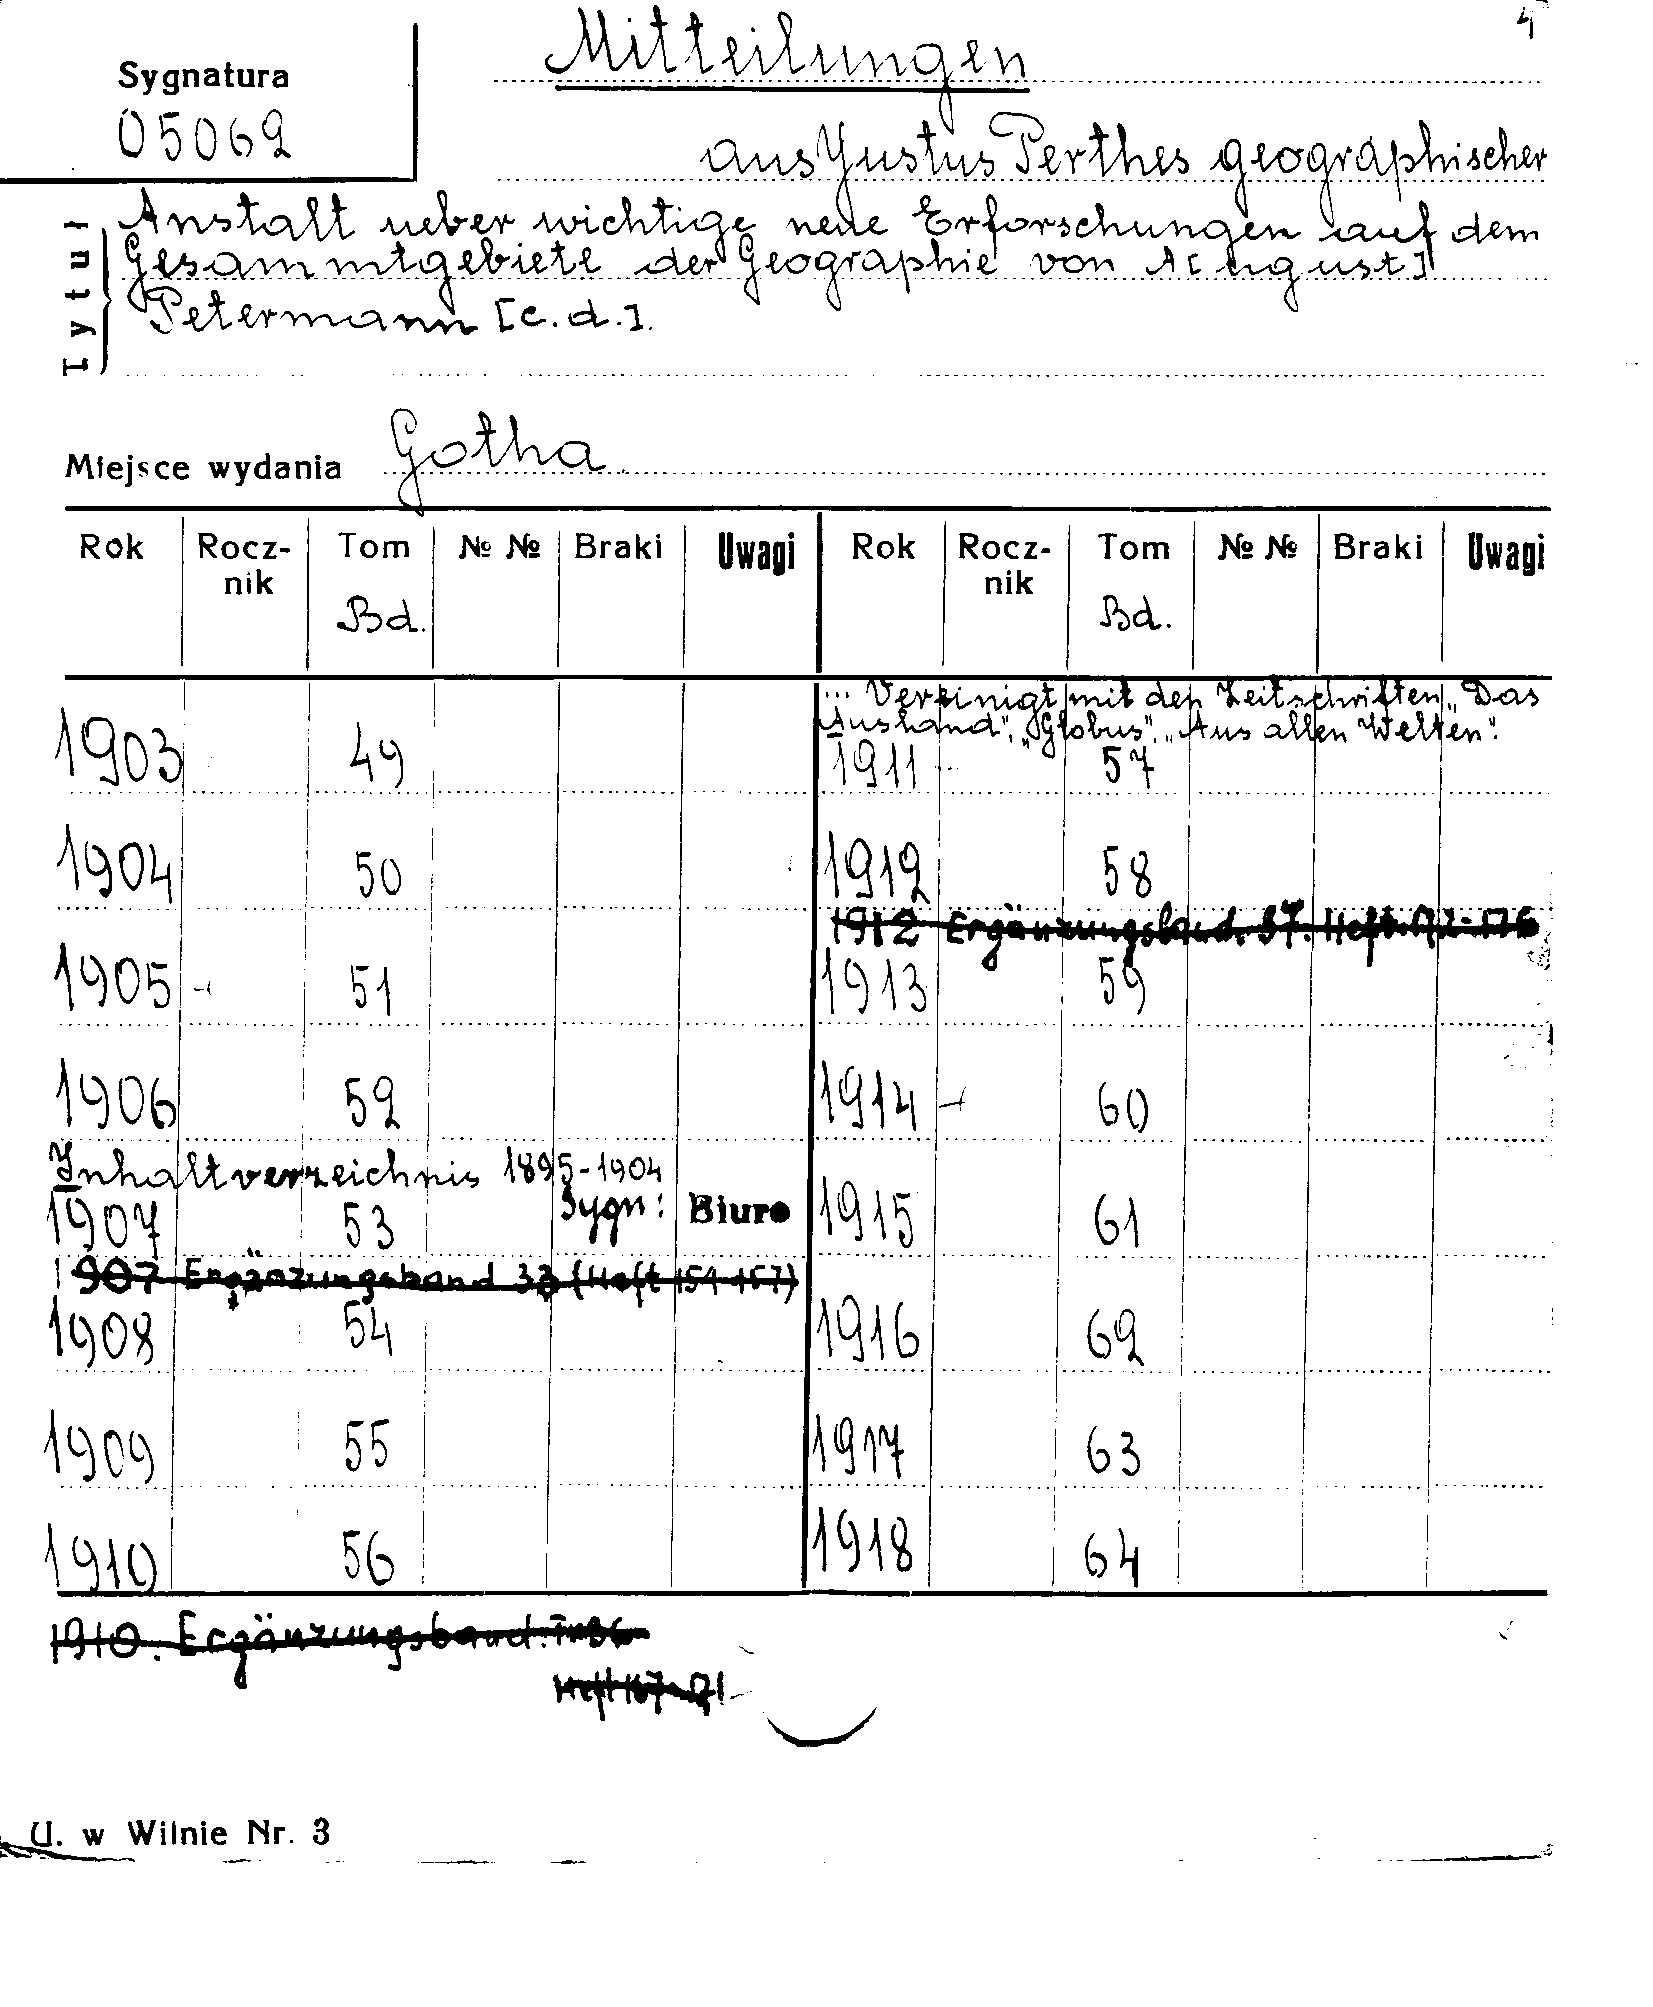 4
Sygnatura
05062
Mitteilungen
aus Justus Perthes geographischer
Tytuł
Anstalt ueber wichtige neue Erforschungen auf dem
Gesammtgebiete der Geographie von A[ugust]
Petermann [c.d.].
Miejsce wydania Gotha
Rok Rocz- Tom № № Braki Uwagi Rok Rocz- Tom № № Braki Uwagi
nik nik
Bd. Bd.
... Vereinigt mit den Zeitschriften „Das
Ausland”, „Globus”, „Aus allen Welten”.
1903 49 1911 57
1904 50 1912 58
1912 Ergänzungsband. 37. Heft. 172-176
1905 51 1913 59
1906 52 1914 60
Inhaltverzeichnis 1895-1904
Sygn: Biuro
1907 53 1915 61
1907 Ergänzungsband 33 (Heft 154-157)
1908 54 1916 62
1909 55 1917 63
1910 56 1918 64
1910. Ergänzungsband.
Heft 167-171
U. w Wilnie Nr. 3